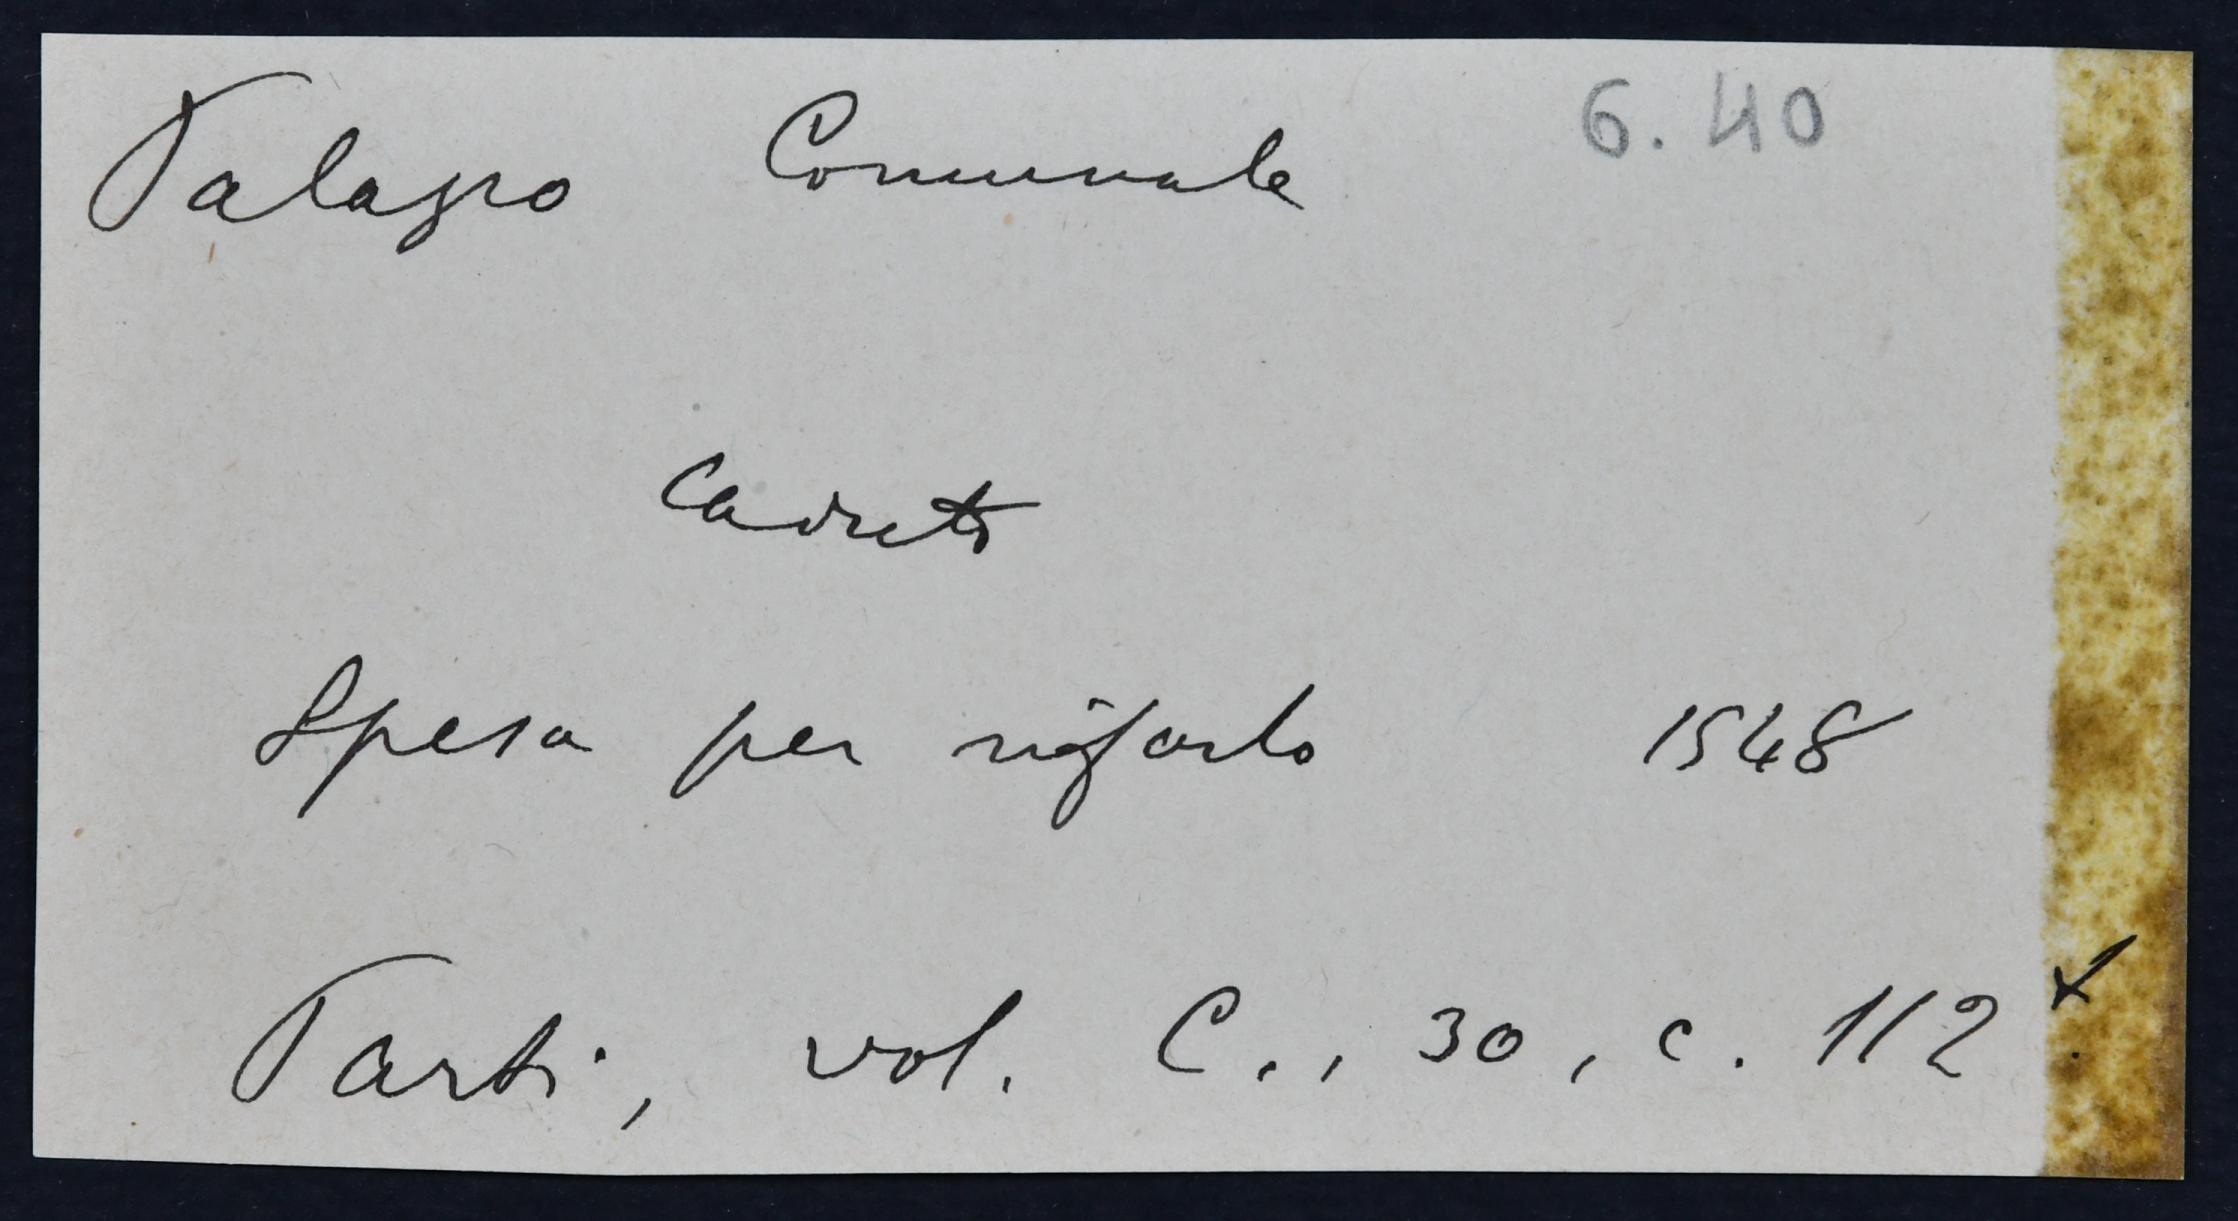 Palazzo Comunale 6.40
Cadreto
Spesa per rifarlo 1548
Parti, vol. C., 30, c. 112